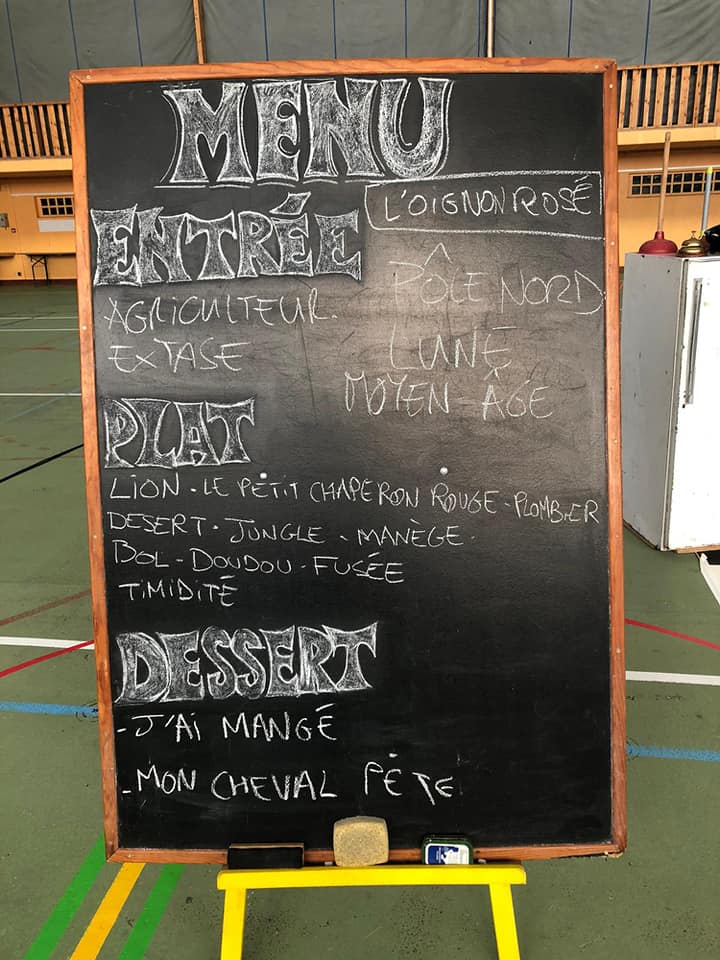 MENU
L'OIGNON ROSÉ
ENTRÉE
AGRICULTEUR.
EXTASE
PÔLE NORD
LUNE
MOYEN-ÂGE
PLAT
LION - LE PETIT CHAPERON ROUGE - PLOMBIER
DESERT - JUNGLE - MANÈGE -
BOL - DOUDOU - FUSÉE
TIMIDITÉ
DESSERT
- J'AI MANGÉ
- MON CHEVAL PÈTE